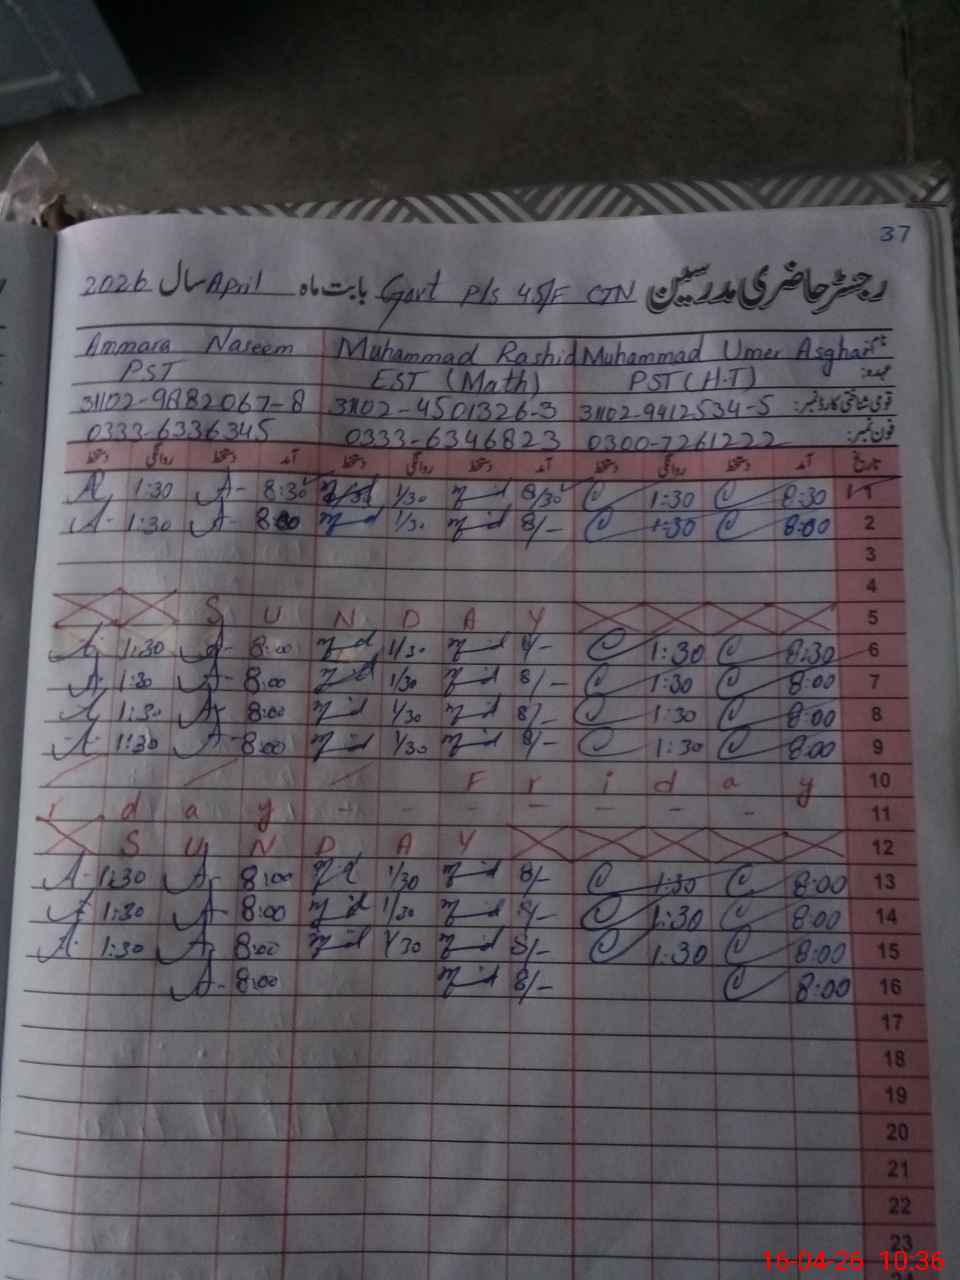 37
رجسٹر حاضری مدرسین Govt P/S 45/F CTN بابت ماہ April سال 2026
نام: Muhammad Umer Asghar Muhammad Rashid Ammara Naseem
عہدہ: PST (H.T) EST (Math) PST
قومی شناختی کارڈ نمبر: 31102-9412534-5 31102-4501326-3 31102-9882067-8
فون نمبر: 0300-7261222 0333-6346823 0333-6336345
تاریخ آمد دستخط روانگی دستخط آمد دستخط روانگی دستخط آمد دستخط روانگی دستخط
1 8:30 1:30 8/30 1/30 8:30 A- 1:30 A
2 8:00 1:30 8/- 1/30 8:00 A- 1:30 A-
3
4
5 S U N D A Y
6 8:30 1:30 8/- 1/30 8:00 A- 1:30 A-
7 8:00 1:30 8/- 1/30 8:00 A- 1:30 A-
8 8:00 1:30 8/- 1/30 8:00 A- 1:30 A-
9 8:00 1:30 8/- 1/30 8:00 A- 1:30 A-
10 F r i d a y
11 r d a y - - - - - - -
12 S U N D A Y
13 8:00 1:30 8/- 1/30 8:00 A- 1:30 A-
14 8:00 1:30 8/- 1/30 8:00 A- 1:30 A-
15 8:00 1:30 8/- 1/30 8:00 A- 1:30 A-
16 8:00 8/- 8:00 A-
17
18
19
20
21
22
23
16-04-26 10:36